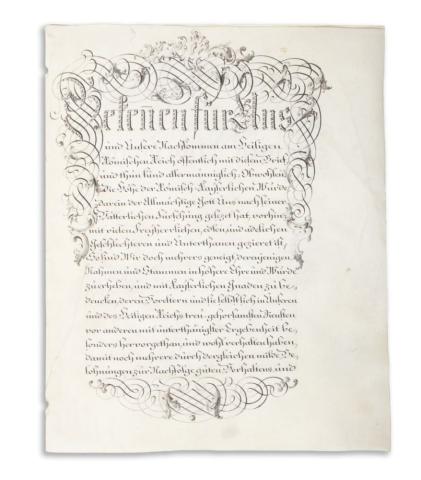 Bekennen für Uns
und Unsere Nachkommen am Heiligen
Römischen Reich öffentlich mit diesem Brief
und thun kund allermänniglich; Obwohlen
die Höhe der Römisch-Kayserlichen Würde
darein der Allmächtige Gott Uns nach seiner
Vätterlichen Fürsehung gesezet hat, vorhin
mit vielen Freyherrlichen, edlen, und adelichen
Geschlechteren und Unterthanen gezieret ist,
So sind Wir doch mehrers geneigt, derenjenigen
Nahmen und Stammen in höhere Ehre und Würde
zu erheben, und mit Kayserlichen Gnaden zu be-
dencken, deren Vordern und sie selbst sich in Unseren
und des Heiligen Reichs treu-gehorsamsten Diensten
vor anderen mit unterthänigster Ergebenheit be-
sonders hervorgethan, und wohl verhalten haben,
damit noch mehrere durch dergleichen milde Be-
lohnungen zur Nachfolge guten Verhaltens und